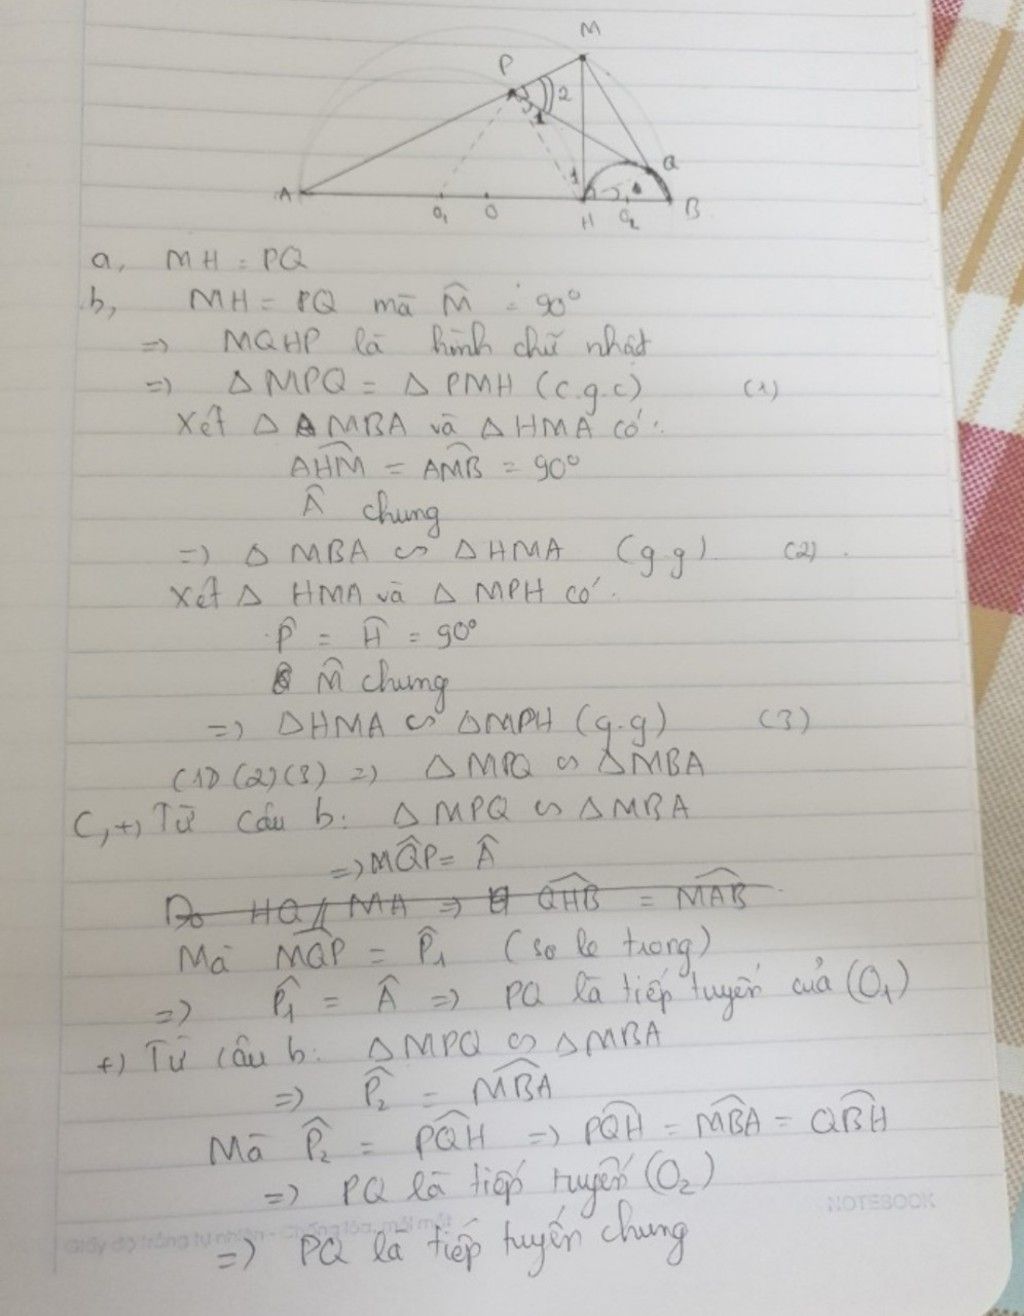 M
P
2
3
1
Q
A
1
O₁
O
H
O₂
B
a, MH = PQ
b, MH = PQ mà M̂ = 90°
=> MQHP là hình chữ nhật
=> Δ MPQ = Δ PMH (c.g.c) (1)
Xét Δ MBA và Δ HMA có:
AHM̂ = AMB̂ = 90°
Â chung
=> Δ MBA ∽ Δ HMA (g.g) (2)
Xét Δ HMA và Δ MPH có:
P̂ = Ĥ = 90°
M̂ chung
=> ΔHMA ∽ ΔMPH (g.g) (3)
(1) (2) (3) => Δ MPQ ∽ ΔMBA
C, +, Từ câu b: Δ MPQ ∽ Δ MBA
=> MQ̂P = Â
Do HQ // MA => QHB̂ = MAB̂
Mà MQP̂ = P̂₁ (so le trong)
=> P̂₁ = Â => PQ là tiếp tuyến của (O₁)
+) Từ câu b: Δ MPQ ∽ Δ MBA
=> P̂₂ = MBÂ
Mà P̂₂ = PQĤ => PQĤ = MBÂ = QBĤ
=> PQ là tiếp tuyến (O₂)
NOTEBOOK
Giấy độ trắng tự nhiên - Chống lóa, mỏi mắt
=> PQ là tiếp tuyến chung